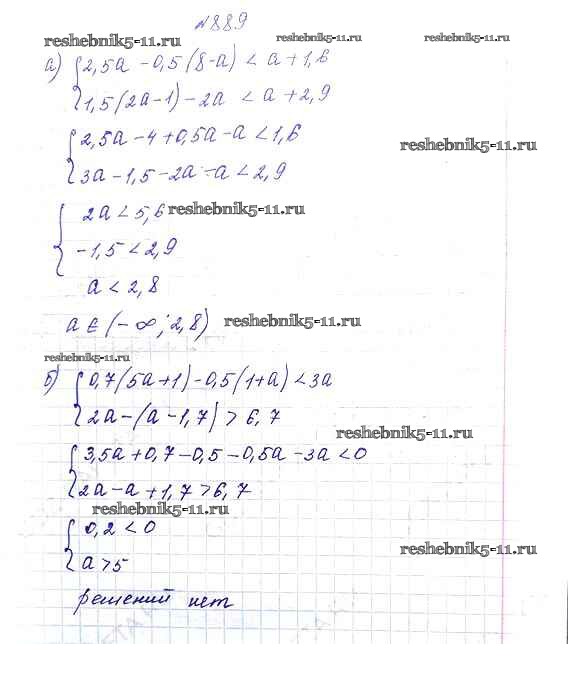 №889
reshebnik5-11.ru reshebnik5-11.ru reshebnik5-11.ru
а) {2,5a - 0,5(8-a) < a + 1,6
1,5(2a-1) - 2a < a + 2,9
{2,5a - 4 + 0,5a - a < 1,6
reshebnik5-11.ru
3a - 1,5 - 2a - a < 2,9
{2a < 5,6 reshebnik5-11.ru
-1,5 < 2,9
a < 2,8
a ∈ (-∞; 2,8) reshebnik5-11.ru
reshebnik5-11.ru
б) {0,7(5a+1) - 0,5(1+a) < 3a
2a - (a - 1,7) > 6,7
reshebnik5-11.ru
{3,5a + 0,7 - 0,5 - 0,5a - 3a < 0
2a - a + 1,7 > 6,7
reshebnik5-11.ru
{0,2 < 0
reshebnik5-11.ru
a > 5
решений нет